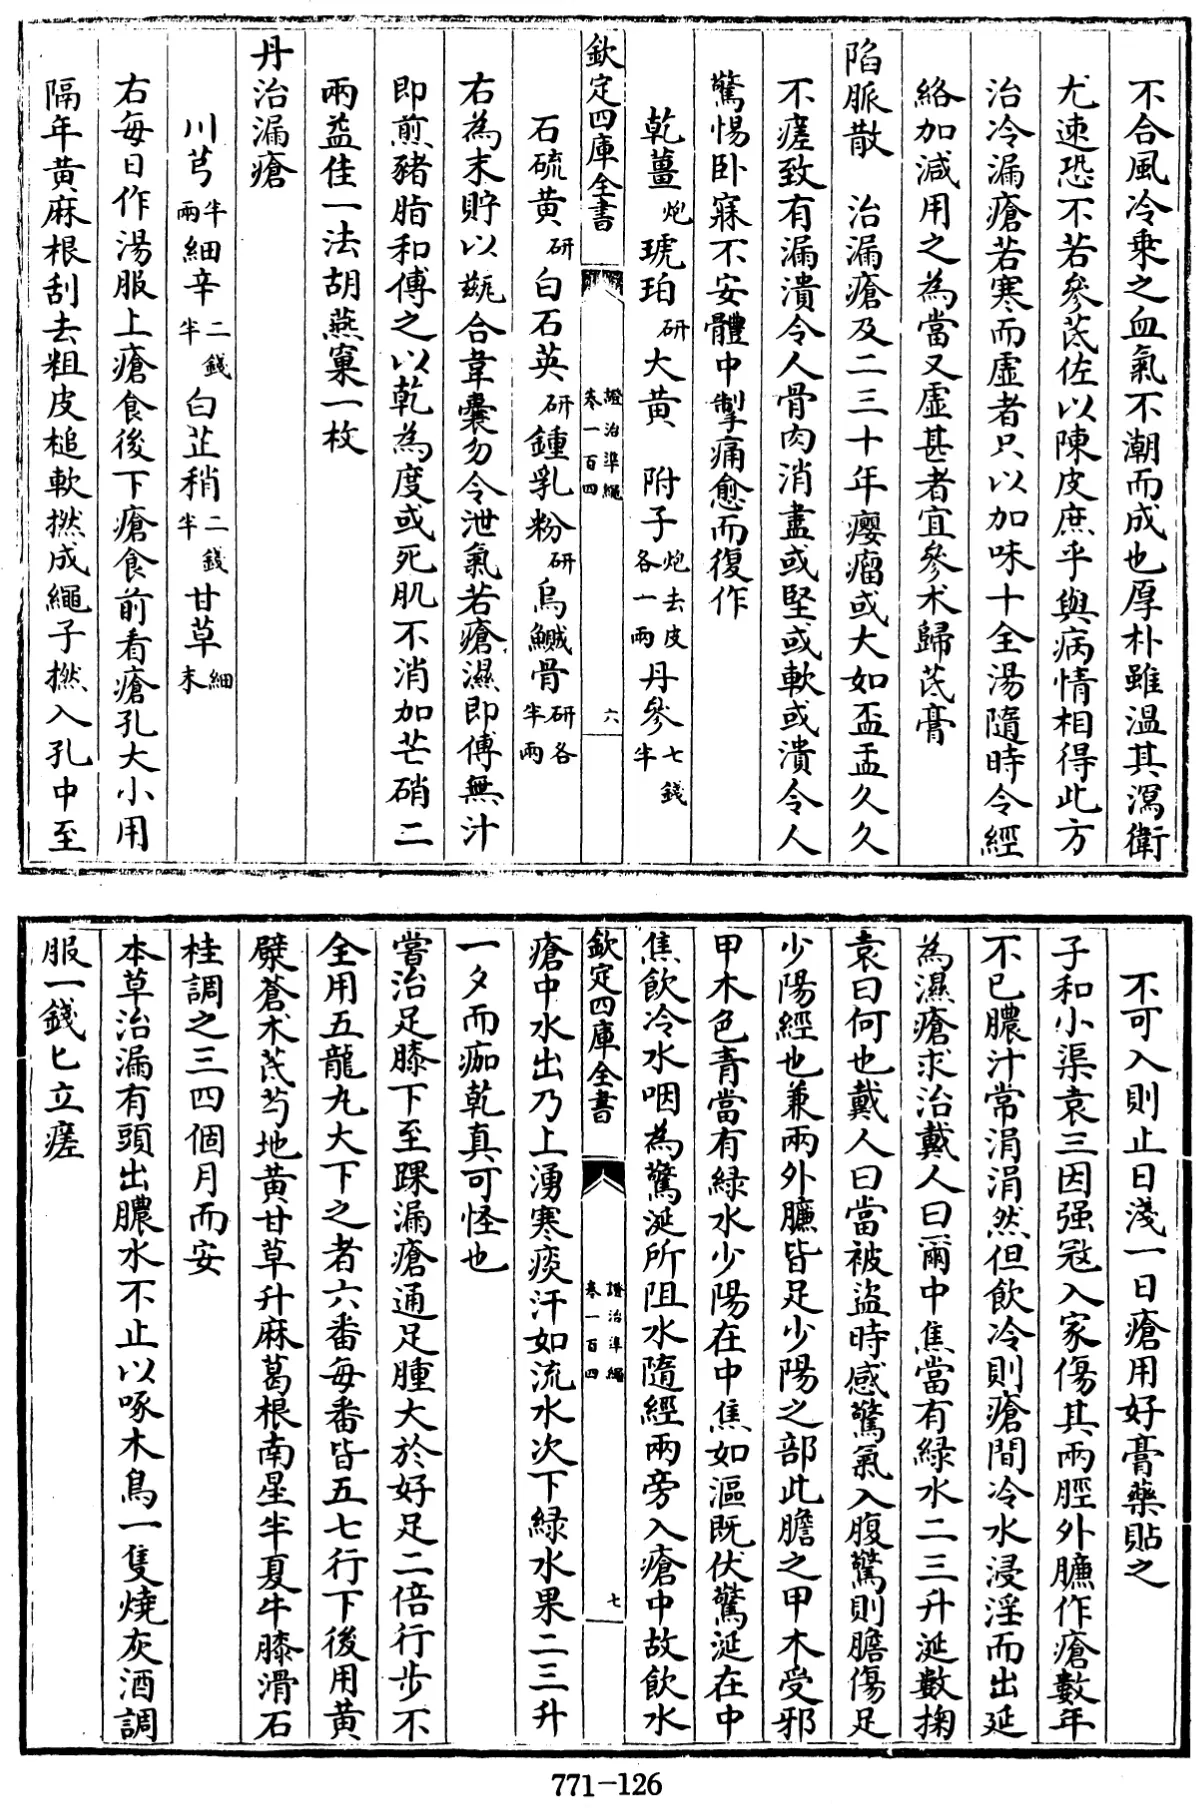 不合風冷乗之血氣不潮而成也厚朴雖温其瀉衛
尤速恐不若參芪佐以陳皮庶乎與病情相得此方
治冷漏瘡若寒而虛者只以加味十全湯隨時令經
絡加減用之為當又虛甚者宜參术歸芪膏
陷脈散　治漏瘡及二三十年癭瘤或大如盃盂久久
不瘥致有漏潰令人骨肉消盡或堅或軟或潰令人
驚惕卧寐不安體中掣痛愈而復作
乾薑炮琥珀研大黄　附子炮去皮各一兩丹參七錢半
欽定四庫全書　證治準繩卷一百四　六
石硫黄研白石英研鍾乳粉研烏鰂骨研各半兩
右為末貯以瓶合韋囊勿令泄氣若瘡濕即傅無汁
即煎豬脂和傅之以乾為度或死肌不消加芒硝二
兩益佳一法胡燕窠一枚
丹治漏瘡
川芎半兩細辛二錢半白芷稍二錢半甘草細末
右每日作湯服上瘡食後下瘡食前看瘡孔大小用
隔年黄麻根刮去粗皮槌軟撚成繩子撚入孔中至
不可入則止日淺一日瘡用好膏藥貼之
子和小渠袁三因强冦入家傷其兩脛外臁作瘡數年
不已膿汁常涓涓然但飲冷則瘡間冷水浸淫而出延
為濕瘡求治戴人曰爾中焦當有緑水二三升涎數掬
袁曰何也戴人曰當被盗時感驚氣入腹驚則膽傷足
少陽經也兼兩外臁皆足少陽之部此膽之甲木受邪
甲木色青當有緑水少陽在中焦如漚既伏驚涎在中
焦飲冷水咽為驚涎所阻水隨經兩旁入瘡中故飲水
欽定四庫全書　證治準繩卷一百四　七
瘡中水出乃上湧寒痰汗如流水次下緑水果二三升
一夕而痂乾真可怪也
嘗治足膝下至踝漏瘡通足腫大於好足二倍行步不
全用五龍丸大下之者六番每番皆五七行下後用黄
檗蒼术芪芍地黄甘草升麻葛根南星半夏牛膝滑石
桂調之三四個月而安
本草治漏有頭出膿水不止以啄木鳥一隻燒灰酒調
服一錢匕立瘥
771-126